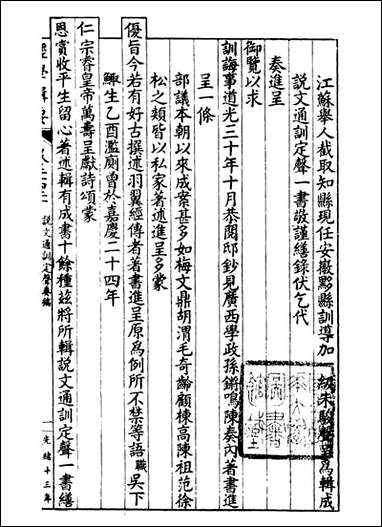 江蘇舉人截取知縣現任安徽黟縣訓導加 級朱駿聲 為輯成
說文通訓定聲一書敬謹繕錄伏乞代
奏進呈
御覽以求
訓誨事道光三十年十月恭閱邸鈔見廣西學政孫鏘鳴陳奏內著書進
呈一條
部議本朝以來成案甚多如梅文鼎胡渭毛奇齡顧棟高陳祖范徐
松之類皆以私家著述進呈多蒙
優旨今若有好古撰述羽翼經傳者著書進呈原為例所不禁等語職吳下
鯫生乙酉濫廁曾於嘉慶二十四年
仁宗睿皇帝萬壽呈獻詩頌蒙
恩賞收平生留心著述輯有成書十餘種茲將所輯說文通訓定聲一書繕
說文通訓定聲
一
光緒十三年